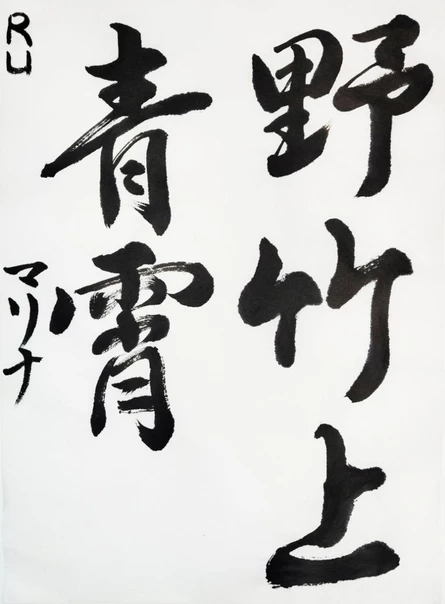 野竹上
青霄
RU
マリナ